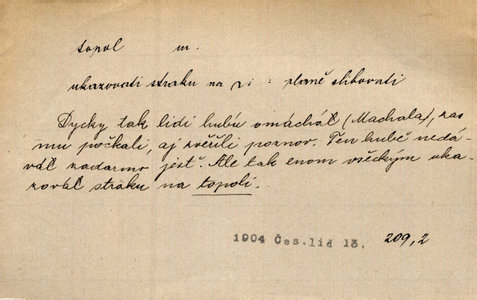 topol m.
ukazovati straku na : planě slibovati
Dycky tak lidí hubu omácháč (Machala), ras
mu počkali, aj zvěřili poznov. Ten hubě nedá-
váč zadarmo jest. Ale tak enom všeckým uka-
zováč straku na topolí.
1904 Čes. lid 13. 209,2